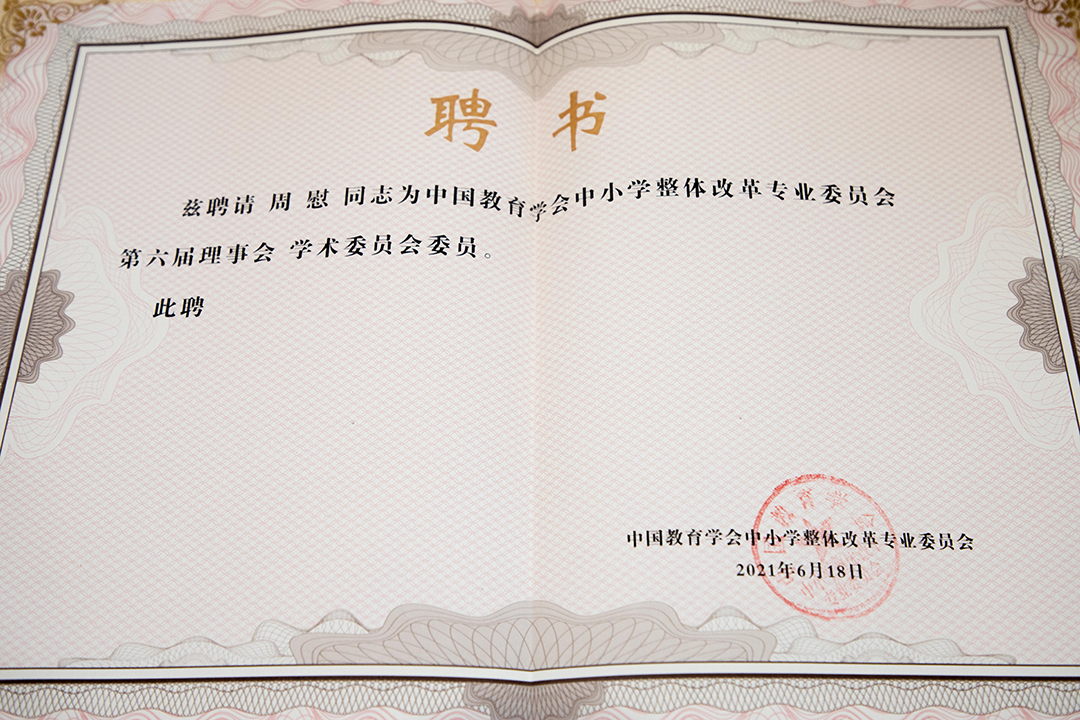 聘 书
兹聘请 周 慰 同志为中国教育学会中小学整体改革专业委员会
第六届理事会 学术委员会委员。
此聘
中国教育学会中小学整体改革专业委员会
2021年6月18日